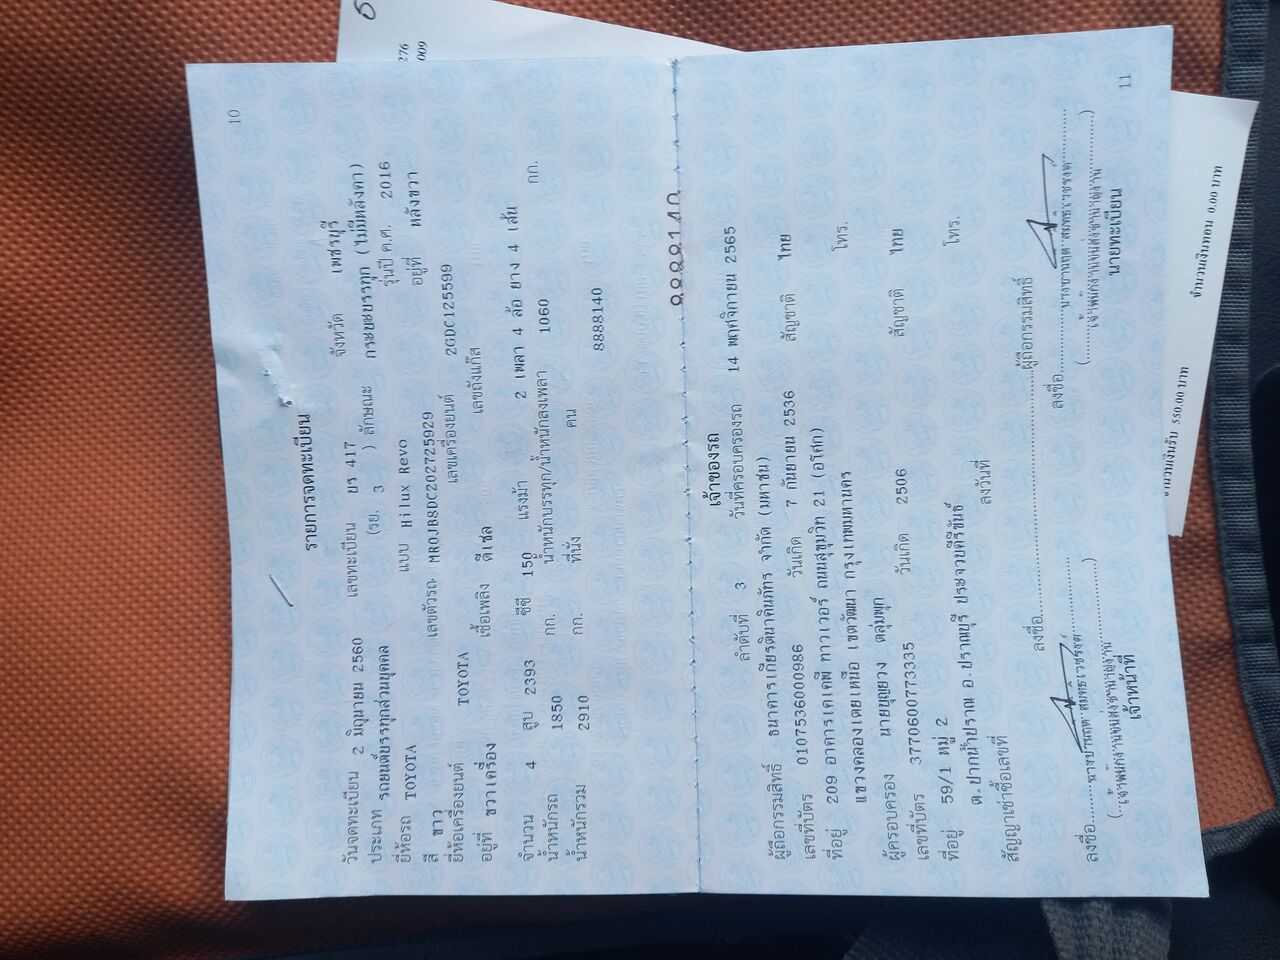 10
รายการจดทะเบียน
วันจดทะเบียน 2 มิถุนายน 2560 เลขทะเบียน บร 417 จังหวัด เพชรบุรี
ประเภท รถยนต์บรรทุกส่วนบุคคล (รย. 3 ) ลักษณะ กระบะบรรทุก (ไม่มีหลังคา)
ยี่ห้อรถ TOYOTA แบบ Hilux Revo รุ่นปี ค.ศ. 2016
สี ขาว เลขตัวรถ MR0JB8DC202725929 อยู่ที่ หลังขวา
ยี่ห้อเครื่องยนต์ TOYOTA เลขเครื่องยนต์ 2GDC125599
อยู่ที่ ขวาเครื่อง เชื้อเพลิง ดีเซล เลขถังแก๊ส
จำนวน 4 สูบ 2393 ซีซี 150 แรงม้า 2 เพลา 4 ล้อ ยาง 4 เส้น
น้ำหนักรถ 1850 กก. น้ำหนักบรรทุก/น้ำหนักลงเพลา 1060 กก.
น้ำหนักรวม 2910 กก. ที่นั่ง คน
8888140
8888140
เจ้าของรถ
ลำดับที่ 3 วันที่ครอบครองรถ 14 พฤศจิกายน 2565
ผู้ถือกรรมสิทธิ์ ธนาคารเกียรตินาคินภัทร จำกัด (มหาชน)
เลขที่บัตร 0107536000986 วันเกิด 7 กันยายน 2536 สัญชาติ ไทย
ที่อยู่ 209 อาคารเคเคพี ทาวเวอร์ ถนนสุขุมวิท 21 (อโศก)
แขวงคลองเตยเหนือ เขตวัฒนา กรุงเทพมหานคร โทร.
ผู้ครอบครอง นายบุญยวง ตลุ่มพุก
เลขที่บัตร 3770600773335 วันเกิด 2506 สัญชาติ ไทย
ที่อยู่ 59/1 หมู่ 2
ต.ปากน้ำปราณ อ.ปราณบุรี ประจวบคีรีขันธ์ โทร.
สัญญาเช่าซื้อเลขที่ ลงวันที่
ลงชื่อ ผู้ถือกรรมสิทธิ์
ลงชื่อ
(เจ้าพนักงานขนส่งชำนาญงาน)
เจ้าหน้าที่
ลงชื่อ
(เจ้าพนักงานขนส่งชำนาญงาน)
นายทะเบียน
11
จำนวนเงินรับ 550.00 บาท จำนวนเงินทอน 0.00 บาท
276
009